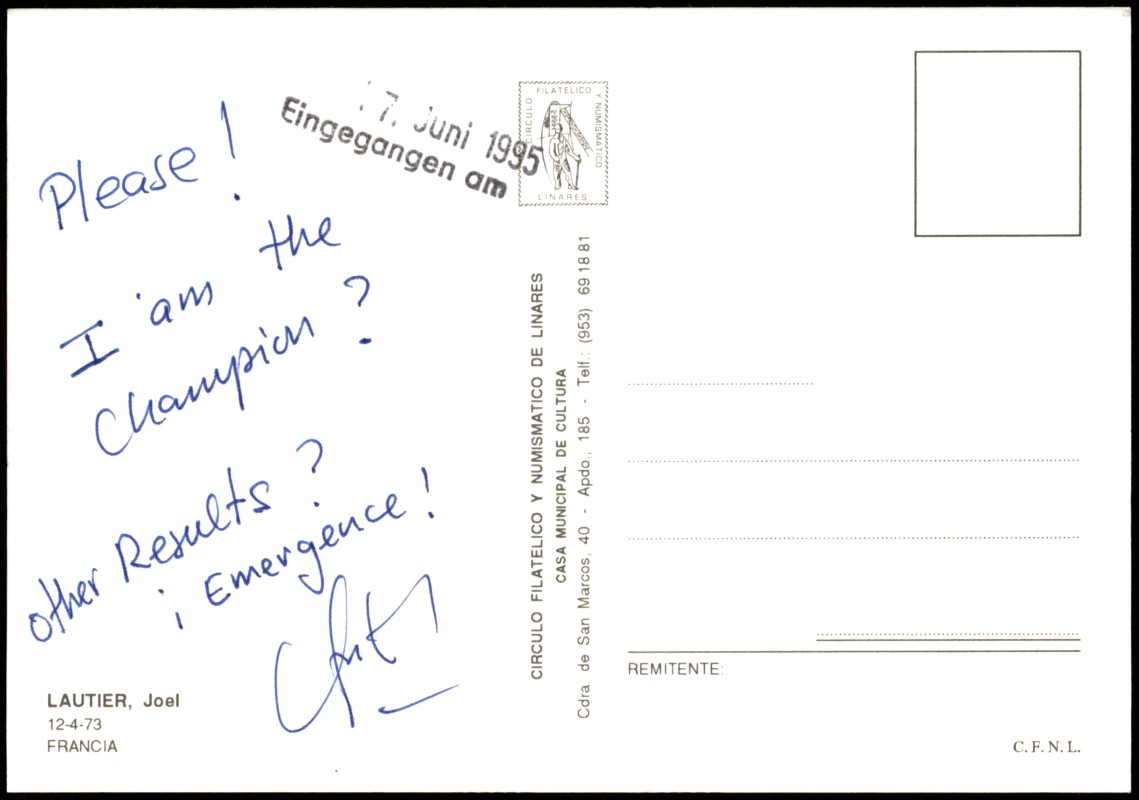 Please!
I am the
Champion?
other Results?
¡ Emergence!
LAUTIER, Joel
12-4-73
FRANCIA
7. Juni 1995
Eingegangen am
CIRCULO FILATELICO Y NUMISMATICO
LINARES
CIRCULO FILATELICO Y NUMISMATICO DE LINARES
CASA MUNICIPAL DE CULTURA
Cdra. de San Marcos, 40 - Apdo., 185 - Telf.: (953) 69 18 81
REMITENTE:
C. F. N. L.